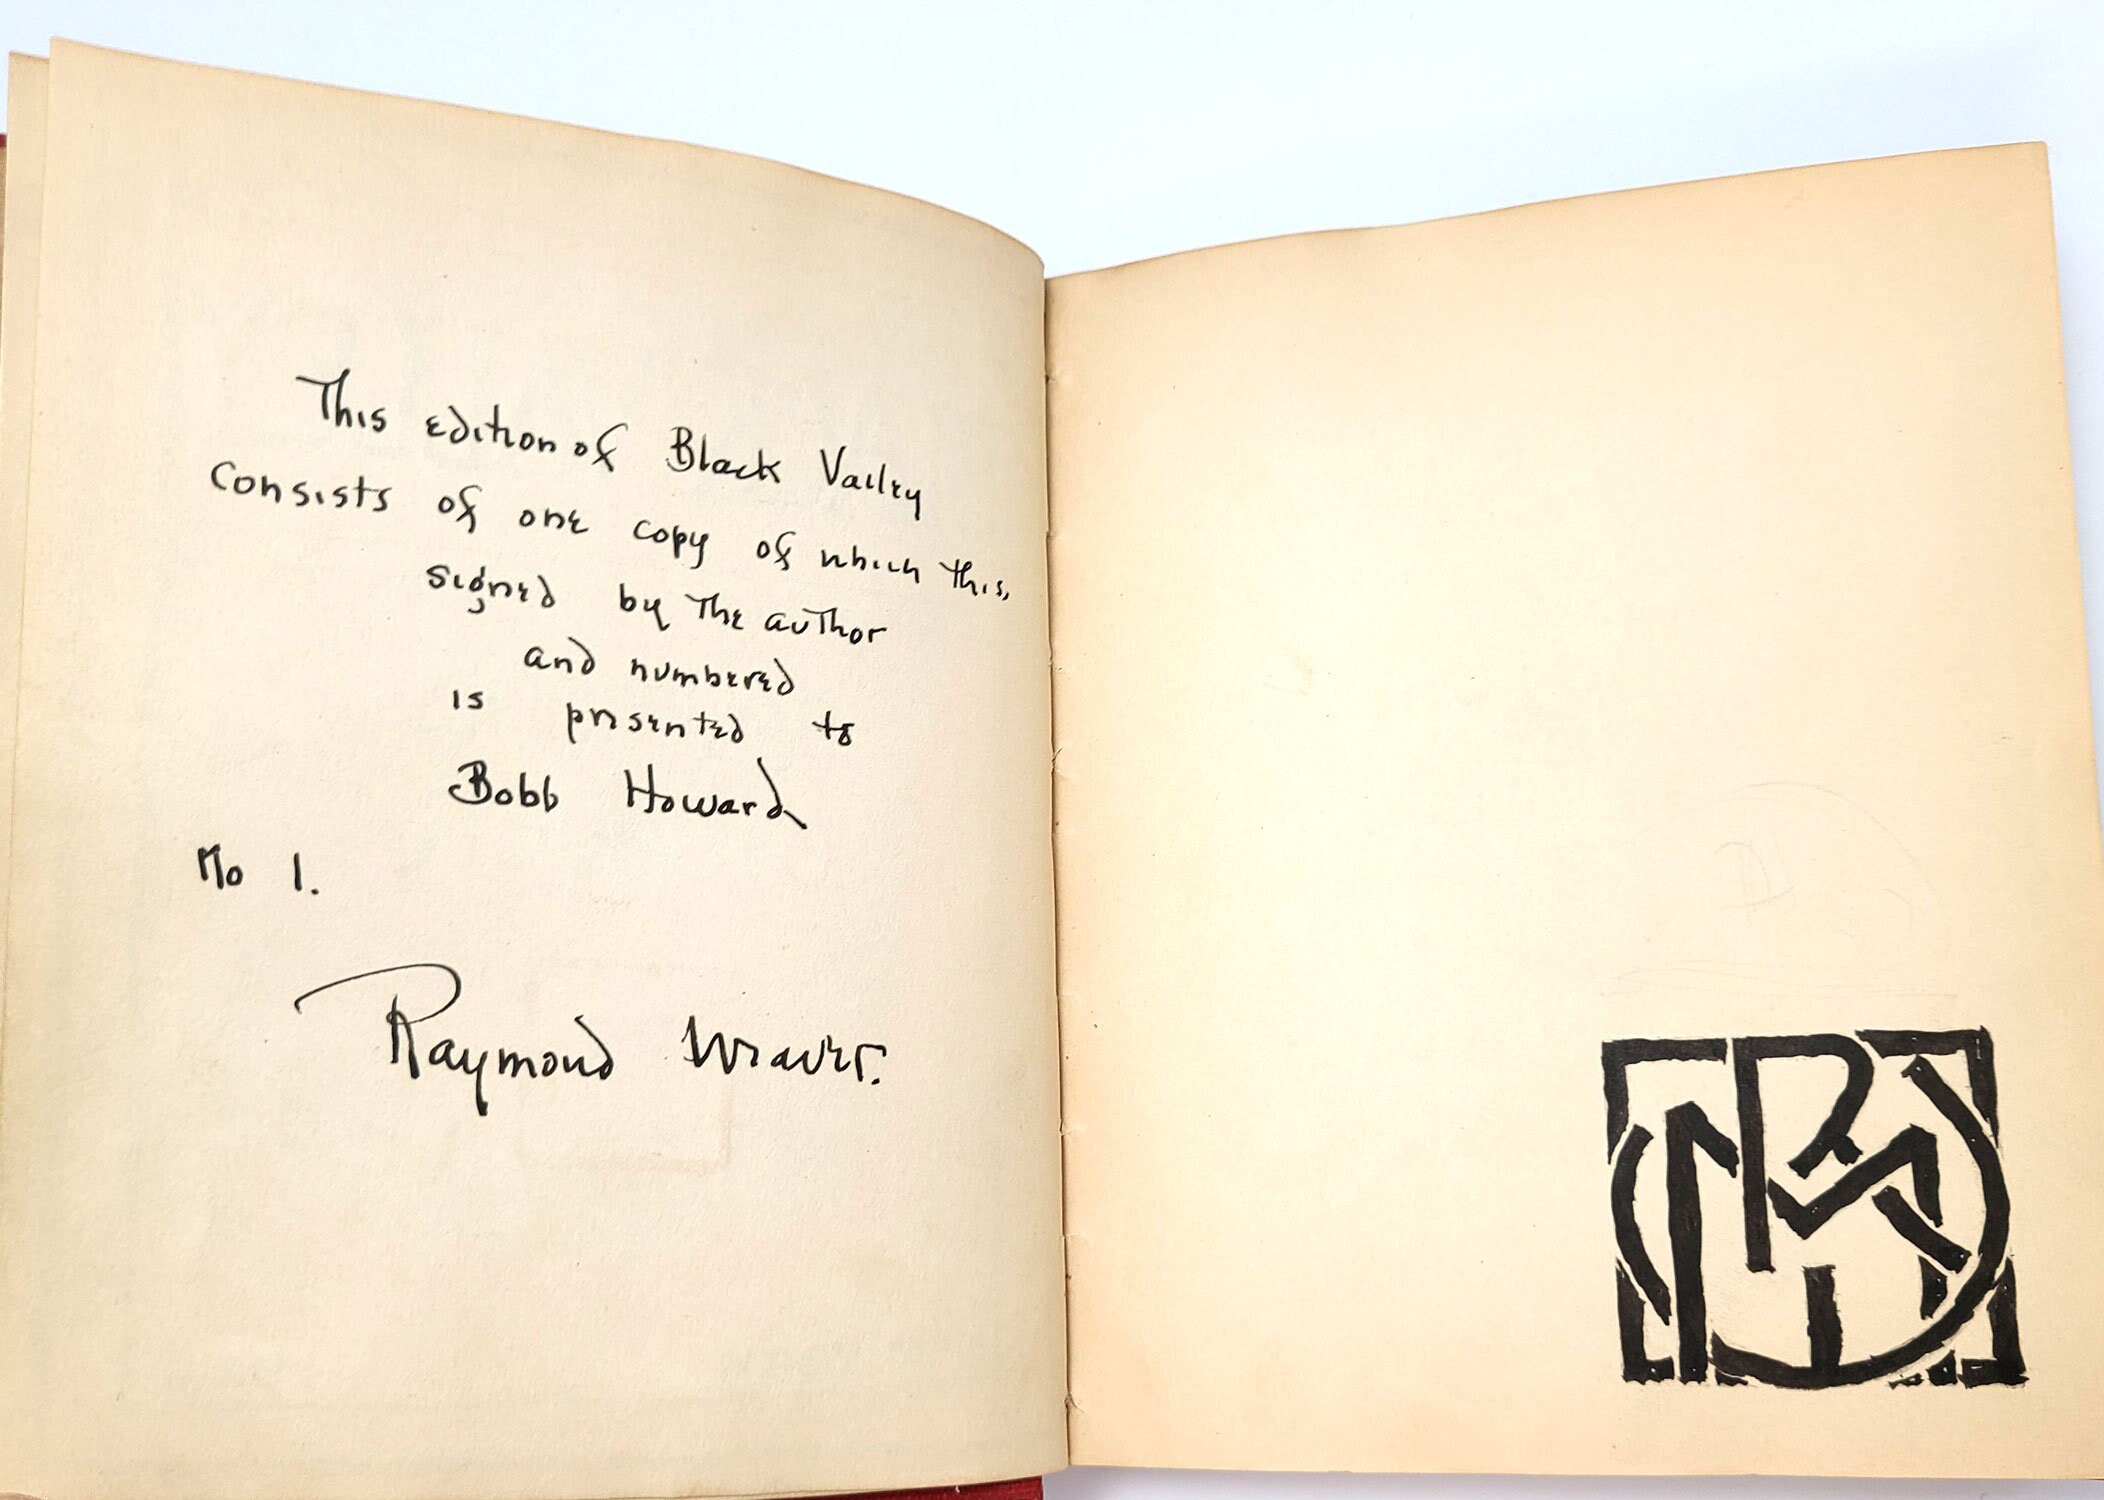 This edition of Black Valley
consists of one copy of which this,
signed by the author
and numbered
is presented to
Bobb Howard
No 1.
Raymond Weaver.